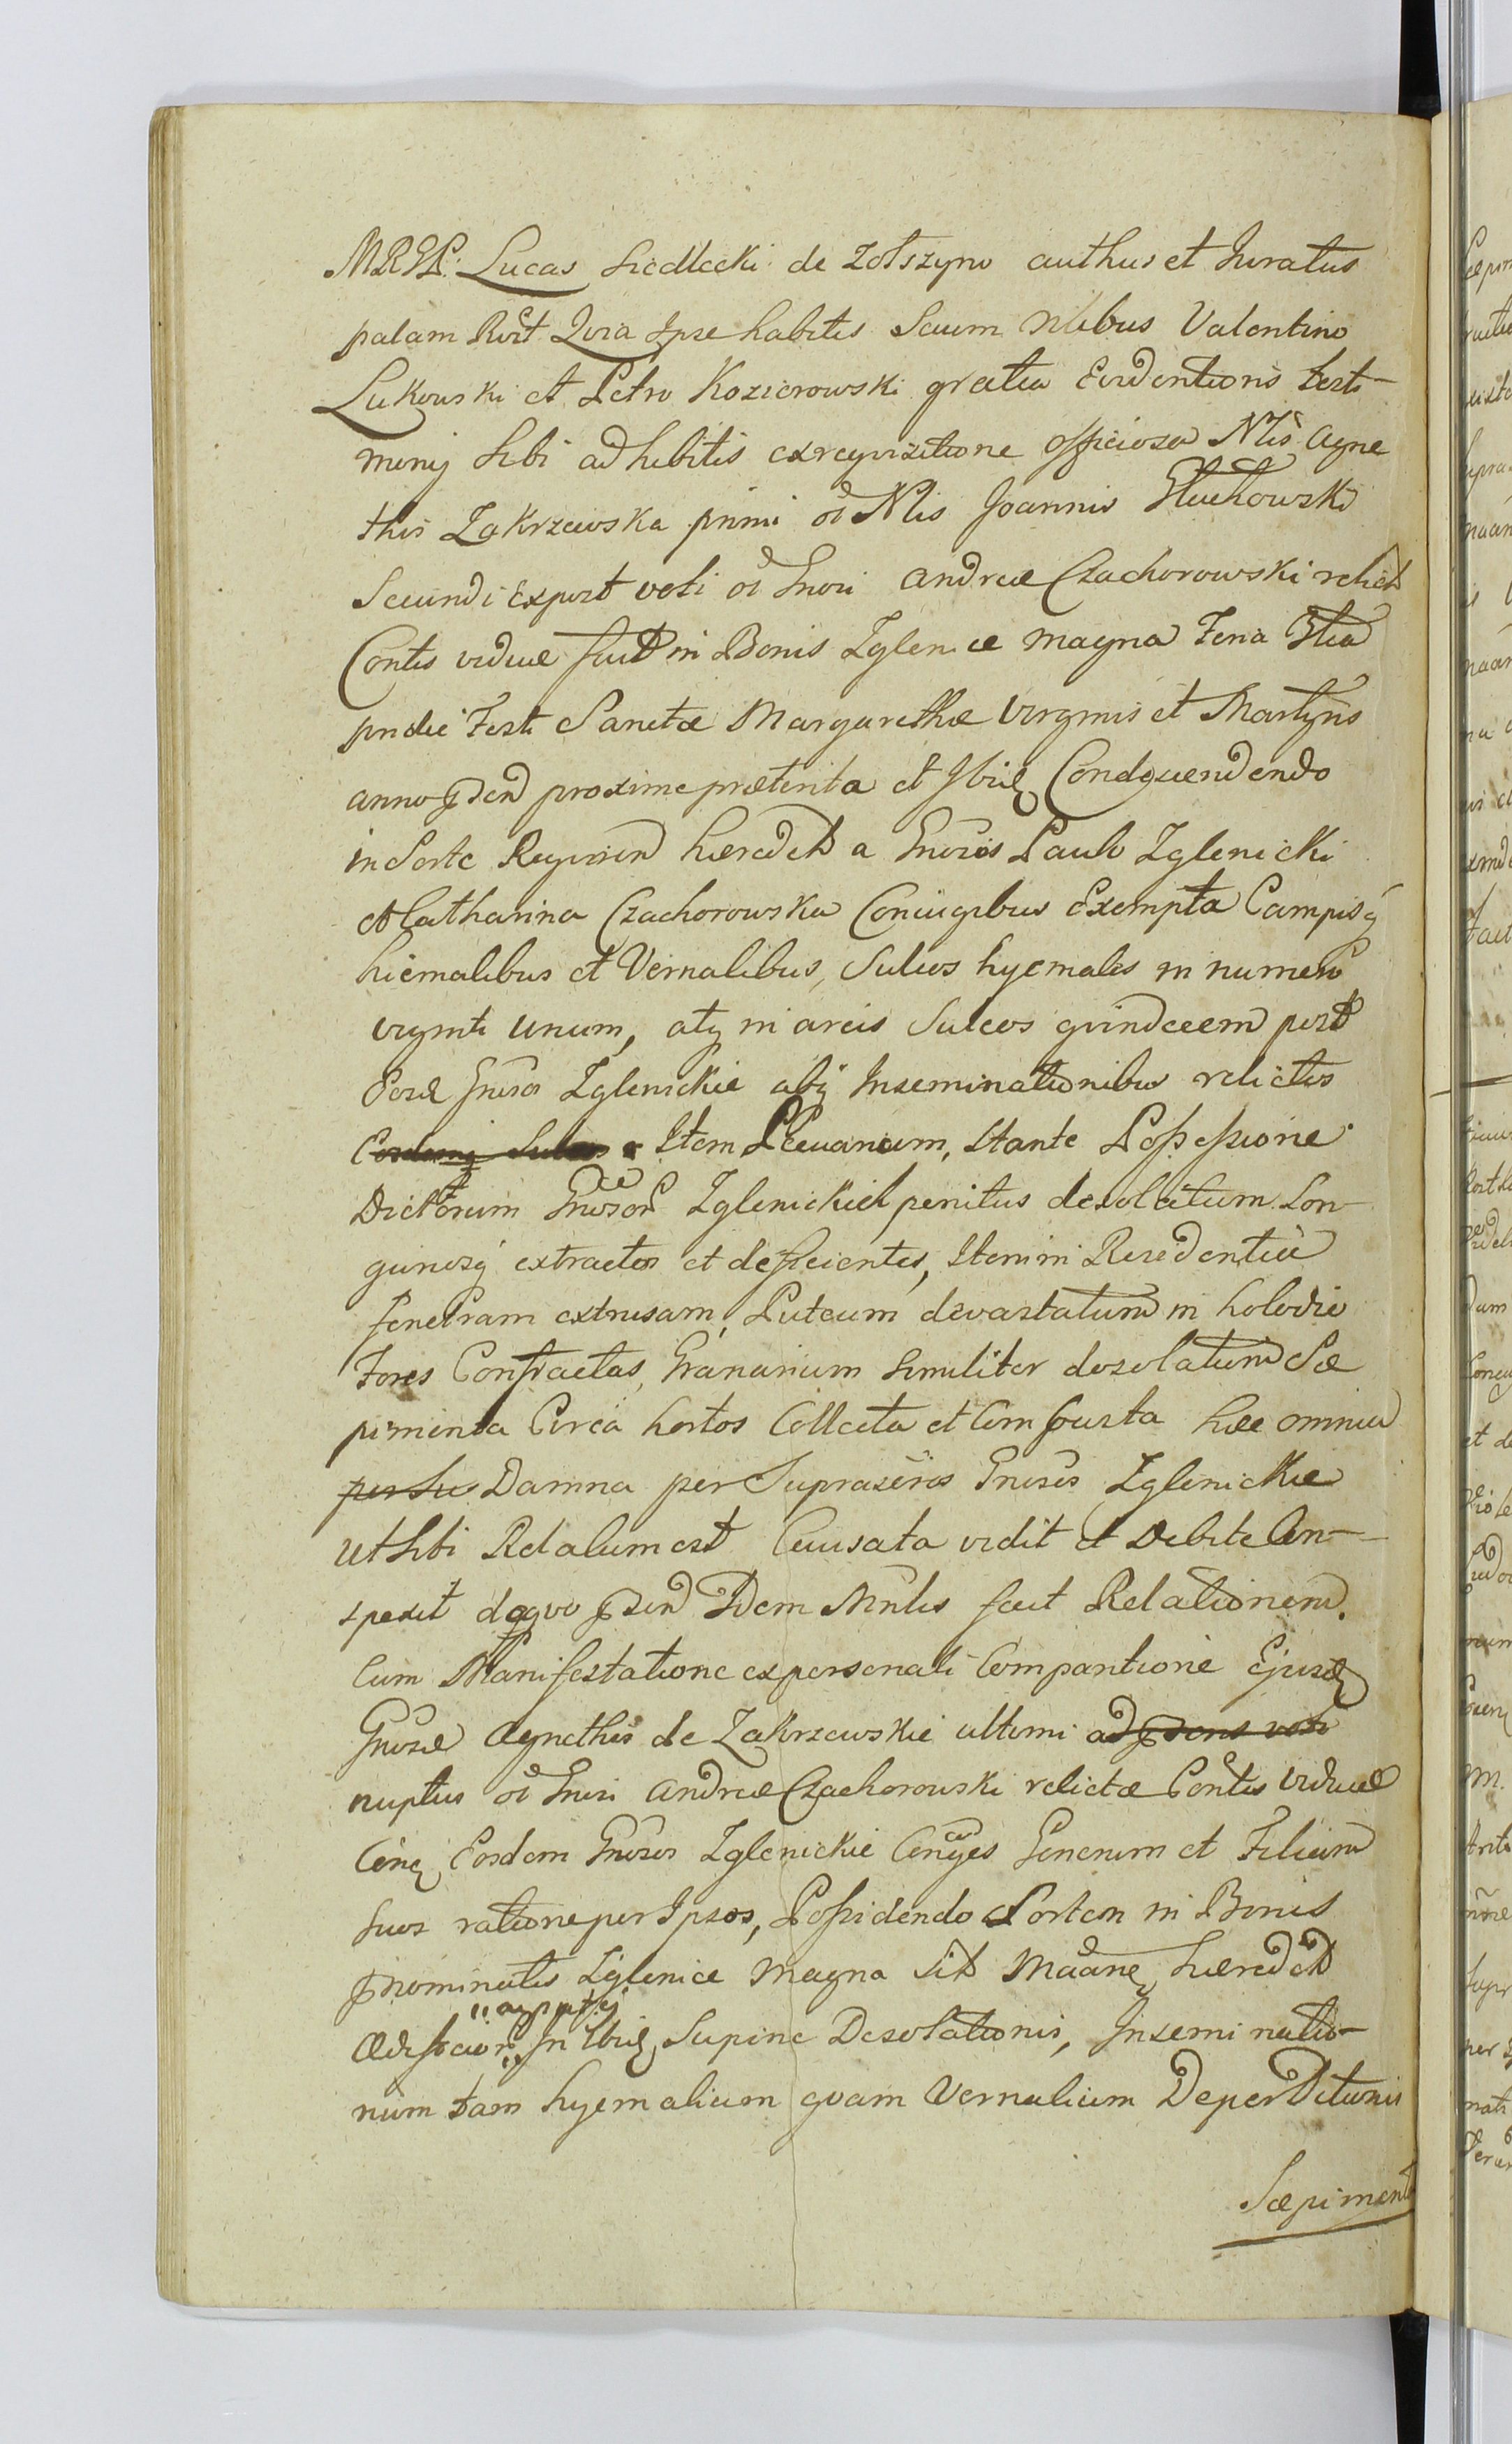 MRGL. Lucas Siedlecki de Zolszyno authus et Juratus
palam Rvit Qvia Ipse habitis Secum Nlibus Valentino
Lukowski et Petro Kozierowski gratia Evidentioris testi-
monij sibi adhibitis ex reqvisitione officiosa Nlis Agne
this Zakrzewska primi oi Nlis Joannis
Secundi Expost voti oi Gnosi Andreæ Czachorowski relict
Contis viduæ fuit in Bonis Zglenice Magna Feria 3tia
pridie Festi Sanctæ Margarethæ Virginis et Martyris
anno psen proxime præterita et Ibid Condqvendendo
in Sorte Reqviren hæredit a Gnosis Paulo Zglenicki
et Catharina Czachorowska Coniugibus Exempta Campisq
hiemalibus et Vernalibus, Sulcos hyemales in numero
viginti Unum, atq in areis Sulcos qvindecem post
Eosd Gnosos Zglenickie absq Inseminationibus relictos
Item Plevanum, Stante Possessione
Dictorum Gnosor Zglenickich penitus desolatum Lon-
guriosq extractos et deficientes, Item in Residentia
fenestram extrusam, Puteum devastatum in holodio
Fores Confractas, Granarium similiter desolatum Sæ
pimenta Circa hortos Collecta et Combusta hæc omnia
per Sus Damna per Suprasöros Gnosos Zglenickie
ut sibi Relatum est Causata vidit et Debite Con-
spexit dqquo psen Idem Mnlis fecit Relationem.
Cum Manifestatione ex personali Comparitione Ejusd
Gnosæ Agnethis de Zakrzewskie ultimi
nuptus oi Gnosi Andreæ Czachorowski relictæ Contis Viduæ
Conq Eosdem Gnosos Zglenickie Conjges Generum et Filiam
suos ratione per Ipsos, Possidendo Sortem in Bonis
pnominatis Zglenice Magna sit hæredit
Ædificior In Ibid Supine Desolationis, Inseminatio-
num tam hyemalium qvam Vernalium Deperditionis
Sæpiment